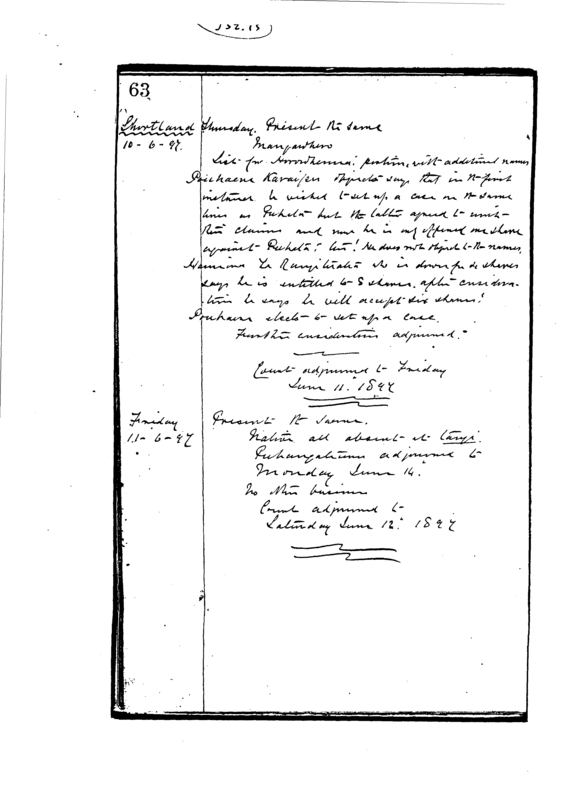 152.15
63
Shortland Thursday. Present the same
10-6-97. Mangawhero
List for portion, with additional names
objects says that in the first
instance he wished to set up a case on the same
lines as but the latter agreed to
their claims and now he is only offered one share
against He does not object to the names.
Te who is down for shares
says he is entitled to 8 shares, after considera-
tion he says he will accept six shares!
elects to set up a case.
Further consideration adjourned.
Court adjourned to Friday
June 11. 1897
Friday Present the same.
11-6-97 Natives all absent at tangi.
adjourned to
Monday June 14.
No other business
Court adjourned to
Saturday June 12. 1897